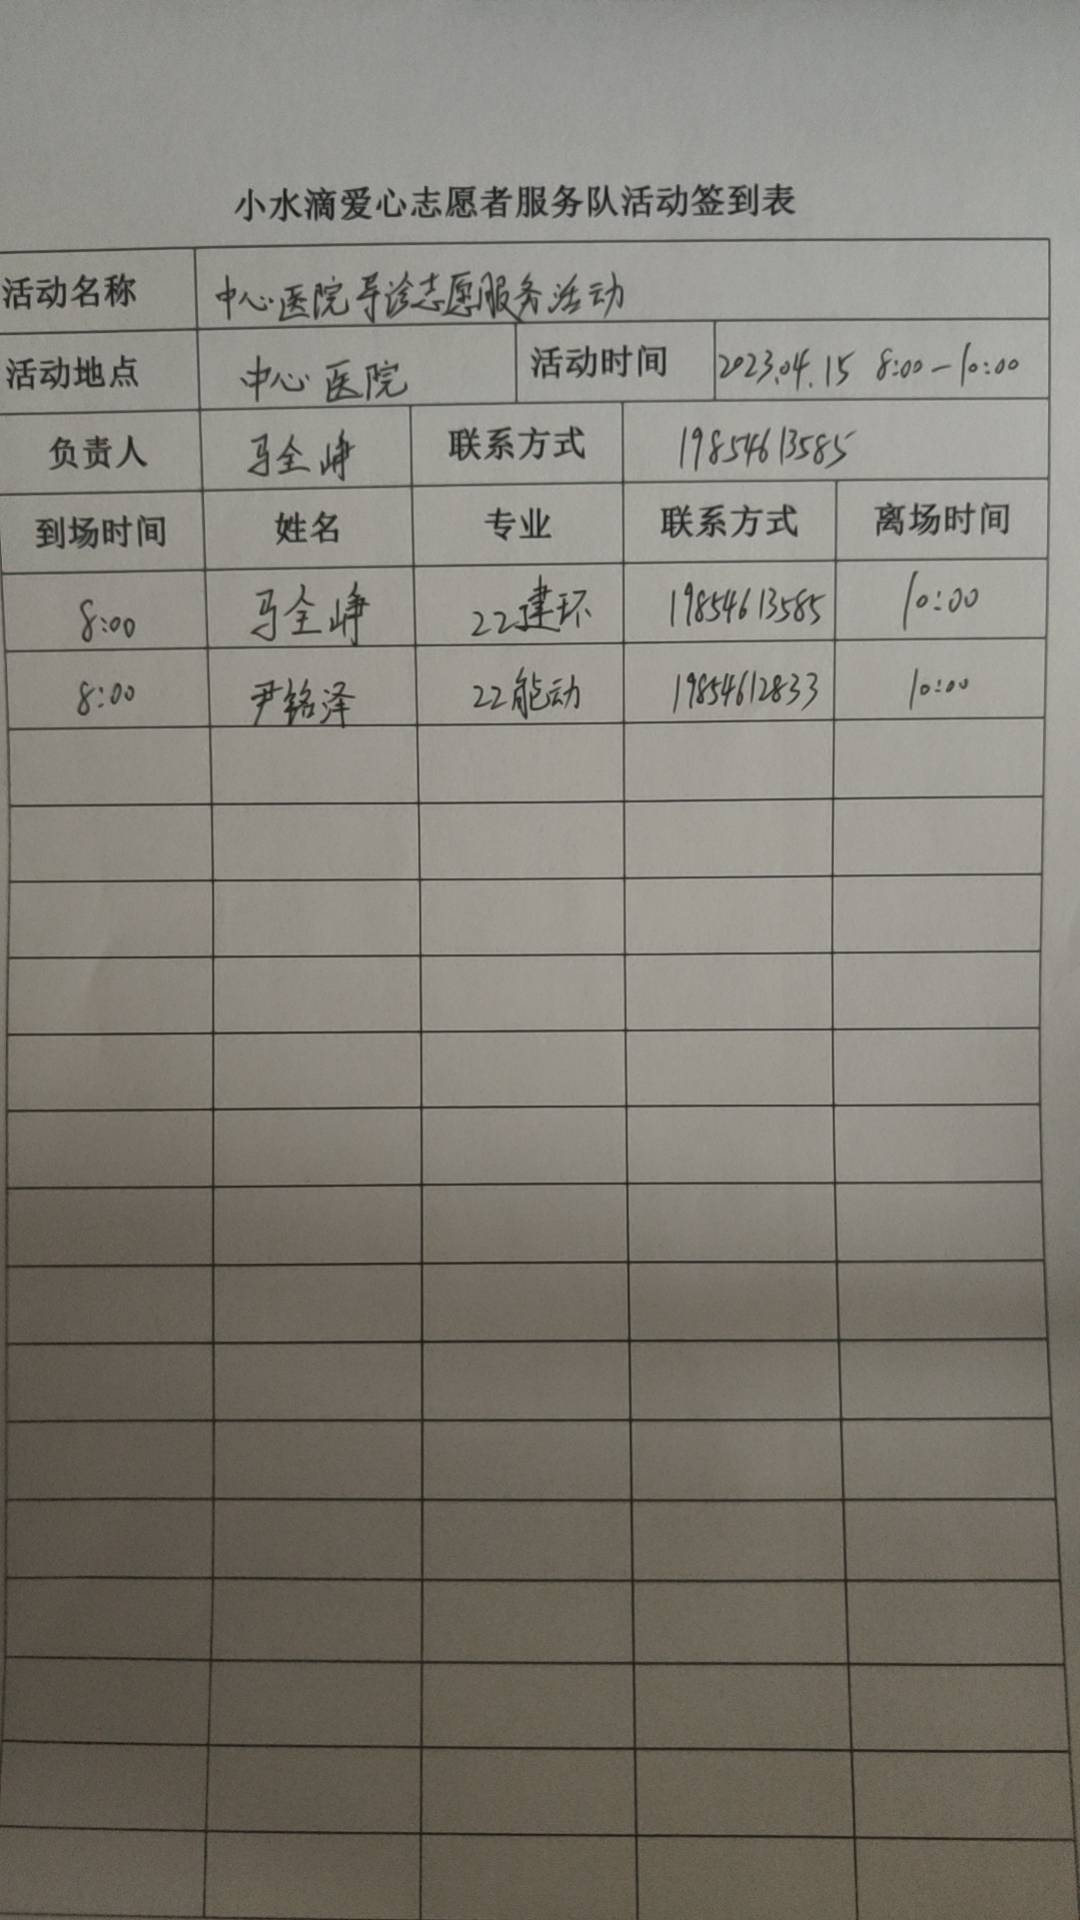 小水滴爱心志愿者服务队活动签到表
活动名称 中心医院导诊志愿服务活动
活动地点 中心医院 活动时间 2023.04.15 8:00-10:00
负责人 马全峥 联系方式 19854613585
到场时间 姓名 专业 联系方式 离场时间
8:00 马全峥 22建环 19854613585 10:00
8:00 尹铭泽 22能动 19854612833 10:00